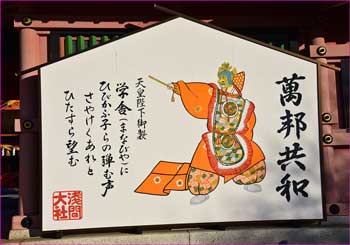 萬邦共和
天皇陛下御製
学舎(まなびや)に
ひびかふ子らの弾む声
さやけくあれと
ひたすら望む
浅間
大社